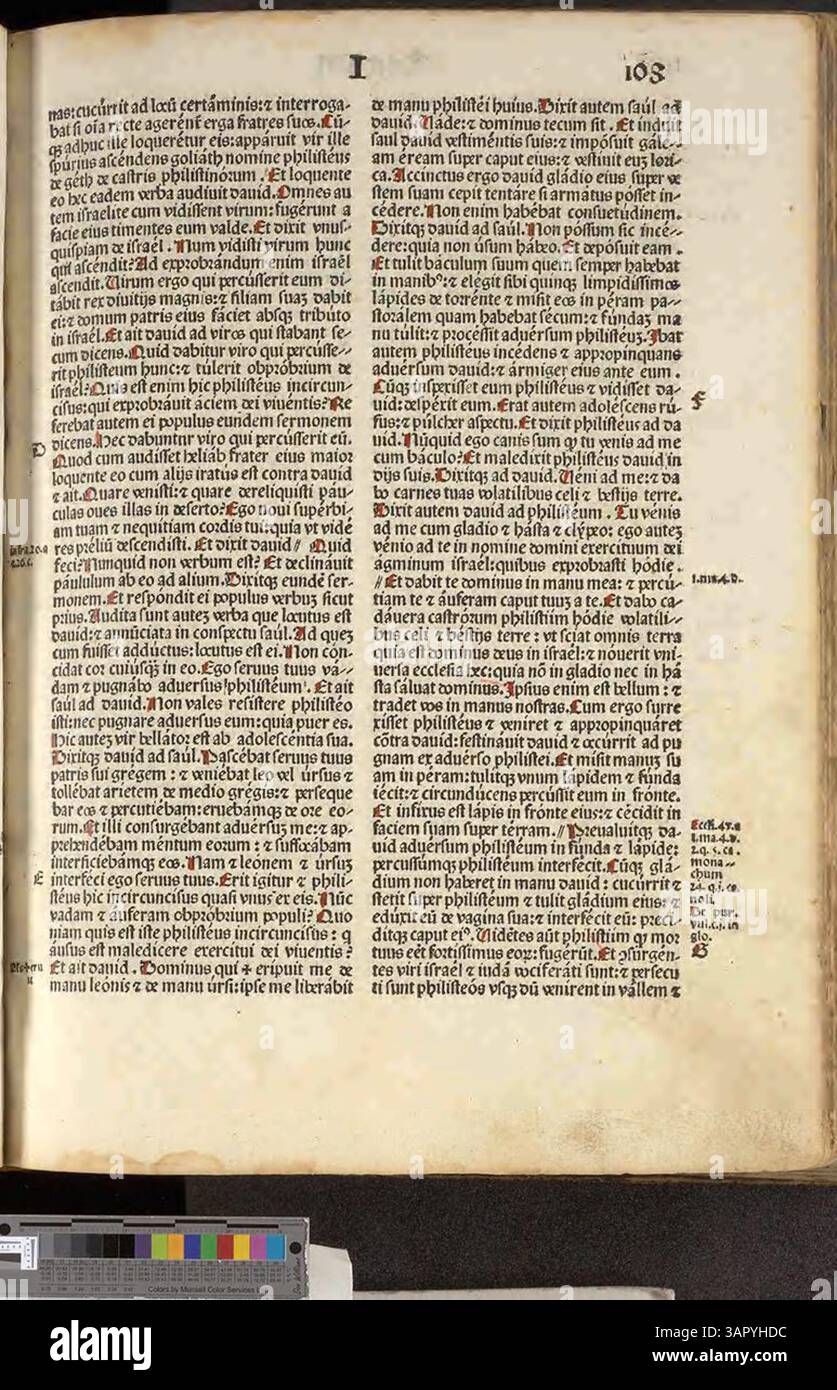 I
103
nas: cucúrrit ad locũ certáminis: ⁊ interroga-
bat si oĩa recte agerenť erga fratres suos. Cũ-
qȝ adhuc ille loqueretur eis: apparuit vir ille
spurius ascéndens goliáth nomine philistéus
de géth de castris philistinórum. Et loquente
eo hec eadem verba audiuit dauid. Omnes au
tem israelite cum vidissent virum: fugérunt a
facie eius timentes eum valde. Et dixit vnus-
quispiam de israél. Num vidisti virum hunc
qui ascéndit? Ad exprobrándum enim israël
ascendit. Uirum ergo qui percússerit eum di-
tábit rex diuitijs magnis: ⁊ filiam suaȝ dabit
ei: ⁊ domum patris eius fáciet absqȝ tribúto
in israél. Et ait dauid ad viros qui stabant se-
cum dicens. Quid dabitur viro qui percússe-
rit philisteum hunc: ⁊ túlerit obpróbrium de
israél? Quis est enim hic philistéus incircun-
cisus: qui exprobráuit áciem dei viuéntis? Re
ferebat autem ei populus eundem sermonem
D
dicens. Hec dabuntur viro qui percússerit eũ.
Quod cum audisset heliáb frater eius maior
loquente eo cum alijs iratús est contra dauid
⁊ ait. Quare venisti: ⁊ quare dereliquisti páu-
culas oues illas in deserto? Ego noui supérbi-
am tuam ⁊ nequitiam cordis tui: quia vt vidé
res préliũ descendisti. Et dixit dauid // Quid
feci? Nunquid non verbum est? Et declináuit
páululum ab eo ad alium. Dixitqȝ eundé ser-
monem. Et respóndit ei populus verbuȝ sicut
prius. Audita sunt auteȝ verba que locutus est
dauid: ⁊ annúciata in conspectu saúl. Ad queȝ
cum fuisset adductus: locutus est ei. Non con-
cidat cor cuiúsqȝ in eo. Ego seruus tuus vá-
dam ⁊ pugnábo aduersus philistéum. Et ait
saúl ad dauid. Non vales resistere philistéo
isti: nec pugnare aduersus eum: quia puer es.
Hic auteȝ vir bellátor est ab adolescéntia sua.
Dixitqȝ dauid ad saúl. Pascébat seruus tuus
patris sui grégem: ⁊ veniébat leo vel úrsus ⁊
tollébat arietem de medio grégis: ⁊ perseque
bar eos ⁊ percutiébam: eruebámqȝ de ore eo-
rum. Et illi consurgébant aduérsuȝ me: ⁊ ap-
prehendébam méntum eorum: ⁊ suffocábam
interficiebámqȝ eos. Nam ⁊ leónem ⁊ úrsuȝ
E
interféci ego seruus tuus. Erit igitur ⁊ phili-
stéus hic incircuncisus quasi vnus ex eis. Nũc
vadam ⁊ áuferam obpróbrium populi? Quo
niam quis est iste philistéus incircuncisus: q
áusus est maledicere exercitui dei viuentis?
Et ait dauid. Dominus qui ⁊ eripuit me de
manu leónis ⁊ de manu úrsi: ipse me liberábit
de manu philistéi huius. Dixit autem saúl ad
dauid. Uáde: ⁊ dominus tecum sit. Et induit
saul dauid vestiméntis suis: ⁊ impósuit gále-
am éream super caput eius: ⁊ vestiuit euȝ lori-
ca. Accinctus ergo dauid gládio eius super ve
stem suam cepit tentáre si armátus pósset in-
cédere. Non enim habébat consuetúdinem.
Dixitqȝ dauid ad saúl. Non póssum sic incé-
dere: quia non úsum hábeo. Et depósuit eam.
Et tulit báculum suum quem semper habebat
in manibꝰ: ⁊ elégit sibi quinqȝ limpidissimos
lápides de torrénte ⁊ misit eos in péram pa-
storálem quam habebat sécum: ⁊ fúndaȝ ma
nu túlit: ⁊ procéssit aduérsum philistéuȝ. Ibat
autem philistéus incédens ⁊ appropinquans
aduérsum dauid: ⁊ ármiger eius ante eum.
Cũqȝ inspexisset eum philistéus ⁊ vidisset da-
uid: despéxit eum. Erat autem adoléscens rú-
F
fus: ⁊ púlcher aspectu. Et dixit philistéus ad da
uid. Nũquid ego canis sum q tu venis ad me
cum báculo? Et maledixit philistéus dauid in
dijs suis. Dixitqȝ ad dauid. Ueni ad me: ⁊ da
bo carnes tuas volatilibus celi ⁊ bestijs terre.
Dixit autem dauid ad philistéum. Tu vénis
ad me cum gladio ⁊ hásta ⁊ clýpeo: ego auteȝ
vénio ad te in nomine domini exercituum dei
ágminum israél: quibus exprobrasti hódie.
1.ma.4.d.
// Et dabit te dominus in manu mea: ⁊ percú-
tiam te ⁊ áuferam caput tuuȝ a te. Et dabo ca-
dáuera castrórum philistiim hódie volatili-
bus celi ⁊ béstijs terre: vt sciat omnis terra
quia est dominus deus in israél: ⁊ nóuerit vni-
uersa ecclesia hec: quia nõ in gladio nec in há
sta sáluat dominus. Ipsius enim est bellum: ⁊
tradet vos in manus nostras. Cum ergo surre
xisset philistéus ⁊ veniret ⁊ appropinquáret
cõtra dauid: festináuit dauid ⁊ occúrrit ad pu
gnam ex aduérso philistei. Et misit manuȝ su
am in péram: tulitqȝ vnum lápidem ⁊ fúnda
iécit: ⁊ circundúcens percússit eum in frónte.
Et infixus est lápis in frónte eius: ⁊ cécidit in
faciem suam super térram. // Preualuitqȝ da-
uid aduérsum philistéum in fúnda ⁊ lápide:
percussúmqȝ philistéum interfécit. Cũqȝ glá-
dium non haberet in manu dauid: cucúrrit ⁊
stetit super philistéum ⁊ tulit gládium eius: ⁊
edúxit eũ de vagina sua: ⁊ interfécit eũ: preci-
ditqȝ caput eiꝰ. Uidétes aũt philistiim q mor
tuus eét fortissimus eoꝝ: fugérũt. Et ɔsúrgén-
tes viri israél ⁊ iudá vociferáti sunt: ⁊ persecu
ti sunt philistéos vsqȝ dũ venirent in vállem ⁊
Eccli.47.a
1.ma.4.d.
2.q.5.ca.
mona-
chum
G
alamy
Image ID: 3APYHDC
www.alamy.com
Colors by Munsell Color Services